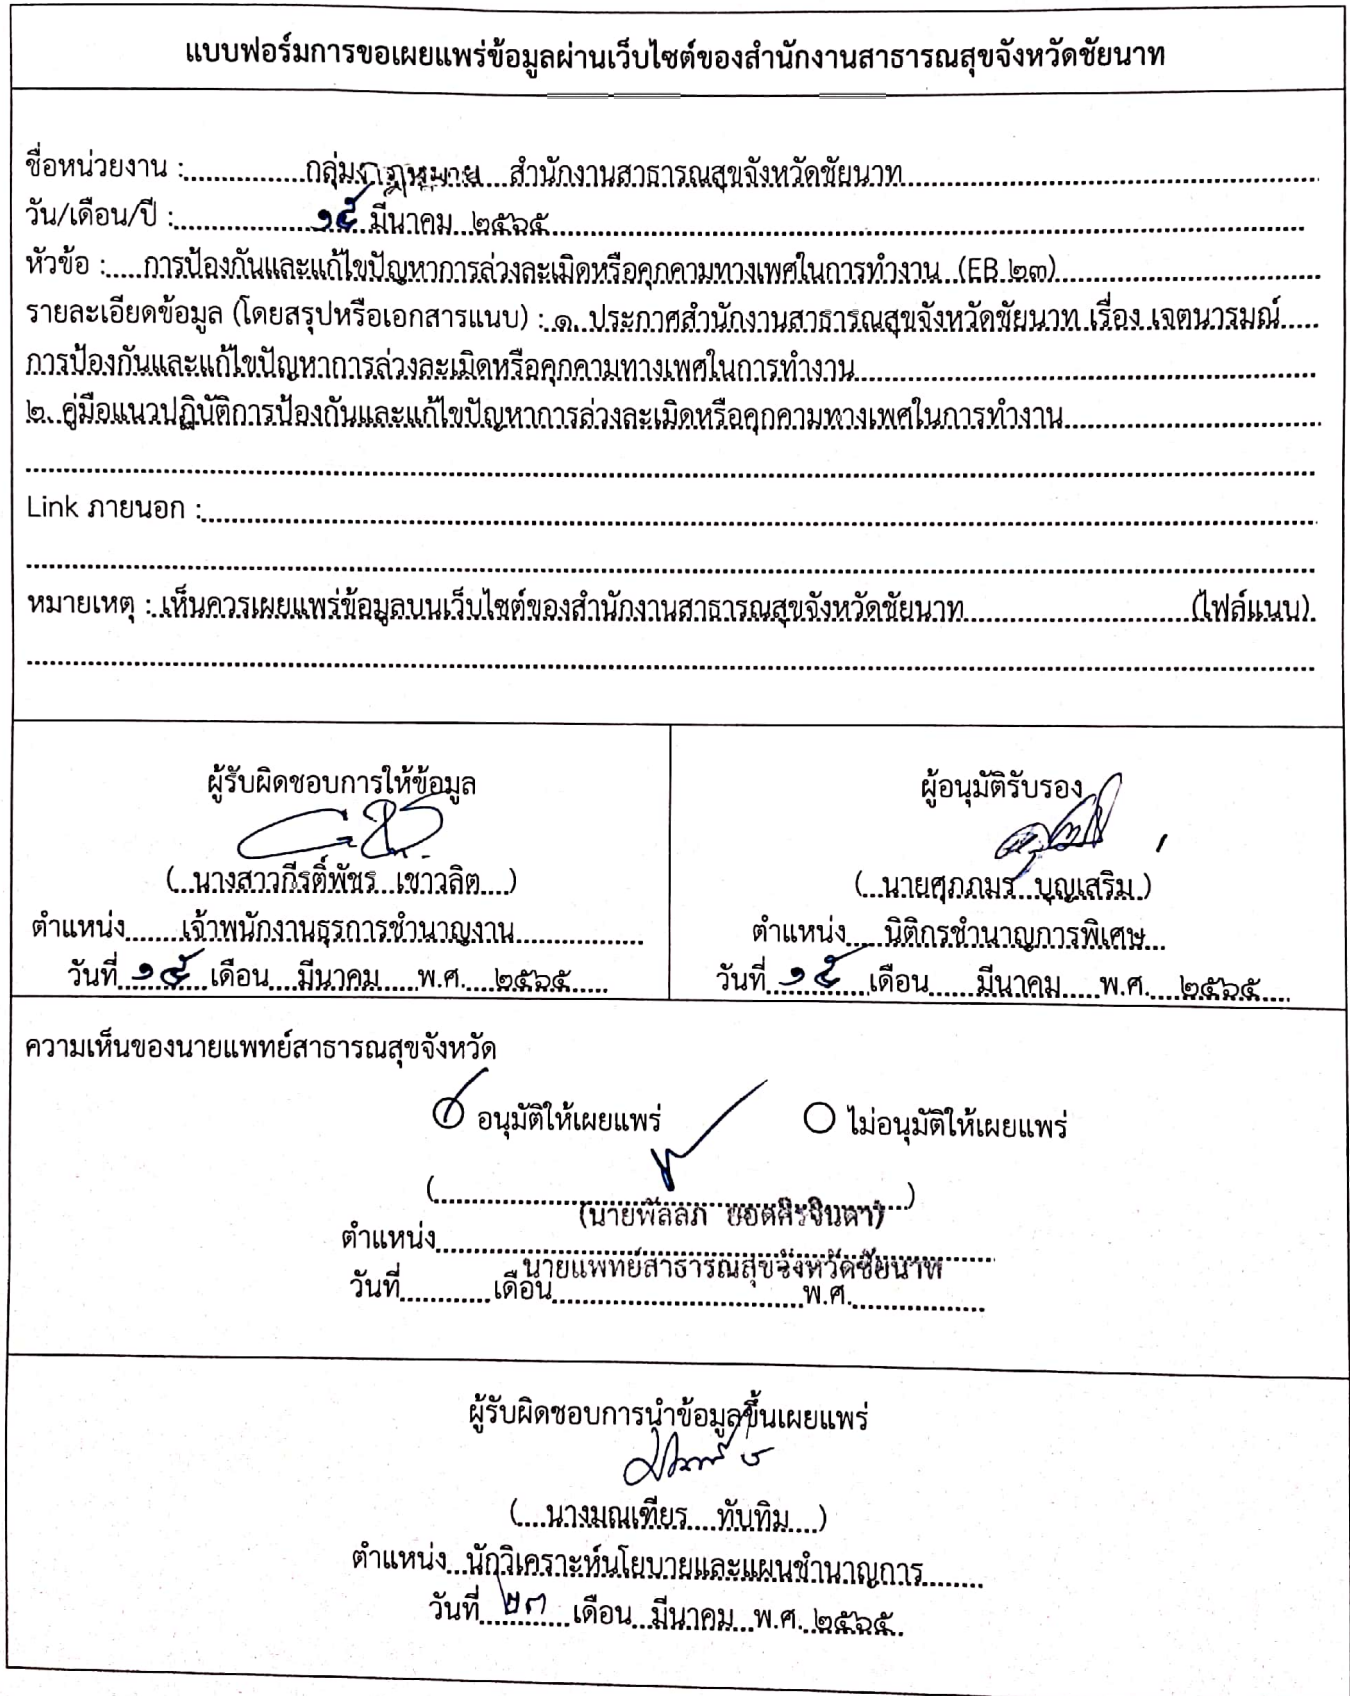 แบบฟอร์มการขอเผยแพร่ข้อมูลผ่านเว็บไซต์ของสำนักงานสาธารณสุขจังหวัดชัยนาท
ชื่อหน่วยงาน : กลุ่มกฎหมาย สำนักงานสาธารณสุขจังหวัดชัยนาท
วัน/เดือน/ปี : ๑๕ มีนาคม ๒๕๖๕
หัวข้อ : การป้องกันและแก้ไขปัญหาการล่วงละเมิดหรือคุกคามทางเพศในการทำงาน (EB ๒๓)
รายละเอียดข้อมูล (โดยสรุปหรือเอกสารแนบ) : ๑. ประกาศสำนักงานสาธารณสุขจังหวัดชัยนาท เรื่อง เจตนารมณ์
การป้องกันและแก้ไขปัญหาการล่วงละเมิดหรือคุกคามทางเพศในการทำงาน
๒. คู่มือแนวปฏิบัติการป้องกันและแก้ไขปัญหาการล่วงละเมิดหรือคุกคามทางเพศในการทำงาน
Link ภายนอก :
หมายเหตุ : เห็นควรเผยแพร่ข้อมูลบนเว็บไซต์ของสำนักงานสาธารณสุขจังหวัดชัยนาท (ไฟล์แนบ)
ผู้รับผิดชอบการให้ข้อมูล
(นางสาวกีรติ์พัชร เชาวลิต)
ตำแหน่ง เจ้าพนักงานธุรการชำนาญงาน
วันที่ ๑๕ เดือน มีนาคม พ.ศ. ๒๕๖๕
ผู้อนุมัติรับรอง
(นายศุภภมร บุญเสริม)
ตำแหน่ง นิติกรชำนาญการพิเศษ
วันที่ ๑๕ เดือน มีนาคม พ.ศ. ๒๕๖๕
ความเห็นของนายแพทย์สาธารณสุขจังหวัด
อนุมัติให้เผยแพร่ ไม่อนุมัติให้เผยแพร่
(นายพัลลภ ยอดศิรจินดา)
ตำแหน่ง
นายแพทย์สาธารณสุขจังหวัดชัยนาท
วันที่ เดือน พ.ศ.
ผู้รับผิดชอบการนำข้อมูลขึ้นเผยแพร่
(นางมณเฑียร ทับทิม)
ตำแหน่ง นักวิเคราะห์นโยบายและแผนชำนาญการ
วันที่ ๒๓ เดือน มีนาคม พ.ศ. ๒๕๖๕